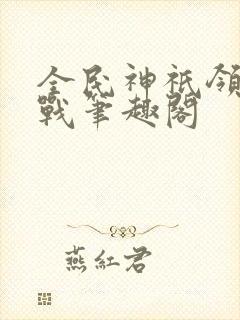 全民神祇領
戰筆趣閣
燕紅君